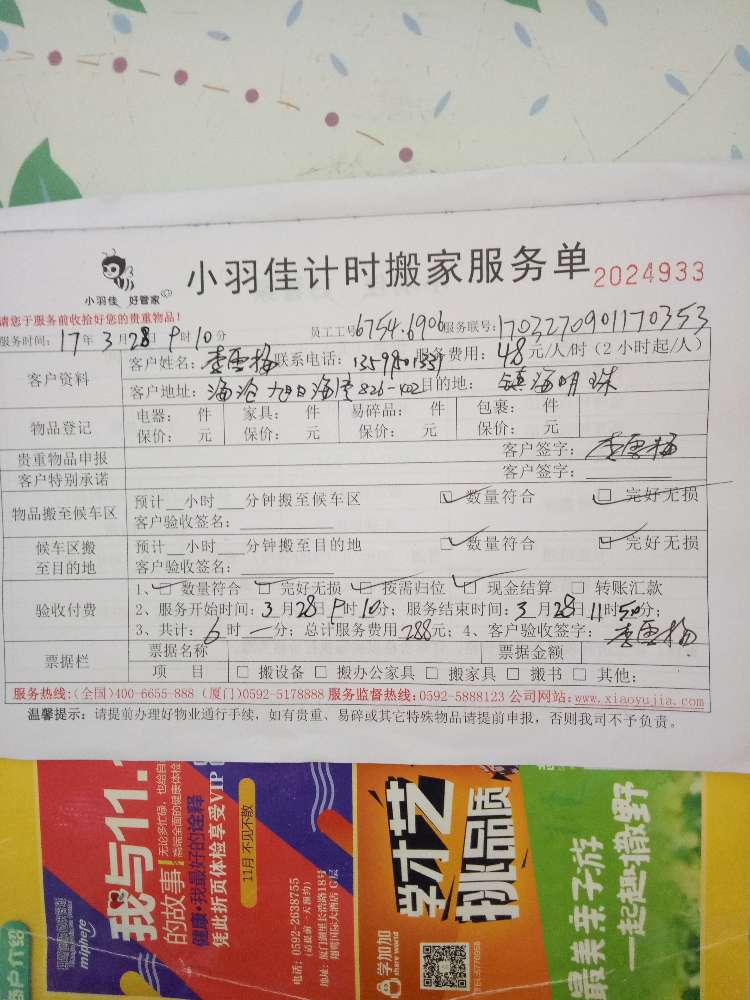 小羽佳 好管家
小羽佳计时搬家服务单 2024933
请您于服务前收拾好您的贵重物品!
员工工号6754.6906服务联号:1703270901170353
服务时间:17年3月28日 时10分
客户资料
客户姓名:李雪梅 联系电话: 服务费用:48元/人/时(2小时起/人)
客户地址:海沧 826-402目的地:镇海明珠
物品登记
电器: 件 家具: 件 易碎品: 件 包裹: 件
保价: 元 保价: 元 保价: 元 保价: 元
贵重物品申报 客户签字:李雪梅
客户特别承诺 客户签字:
物品搬至候车区
预计__小时__分钟搬至候车区 数量符合 完好无损
客户验收签名:
候车区搬至目的地
预计__小时__分钟搬至目的地 数量符合 完好无损
客户验收签名:
验收付费
1、数量符合 完好无损 按需归位 现金结算 转账汇款
2、服务开始时间:3月28日 时10分;服务结束时间:3月28日11时50分;
3、共计:6时一分;总计服务费用288元;4、客户验收签字:李雪梅
票据栏
票据名称 票据金额
项 目 搬设备 搬办公家具 搬家具 搬书 其他:
服务热线:(全国)400-6655-888 (厦门)0592-5178888 服务监督热线:0592-5888123 公司网站:www.xiaoyujia.com
温馨提示:请提前办理好物业通行手续,如有贵重、易碎或其它特殊物品请提前申报,否则我司不予负责。
我与11.1
的故事!
无论多忙碌,也给自
健康·我最好的诠释
凭此折页体检享受VIP
11月 不见不散
电话:0592-2638755
(请提前一天预约)
miphere
学才艺
挑品质
学加加
share world
最美亲子游
一起趣撒野
客户介绍